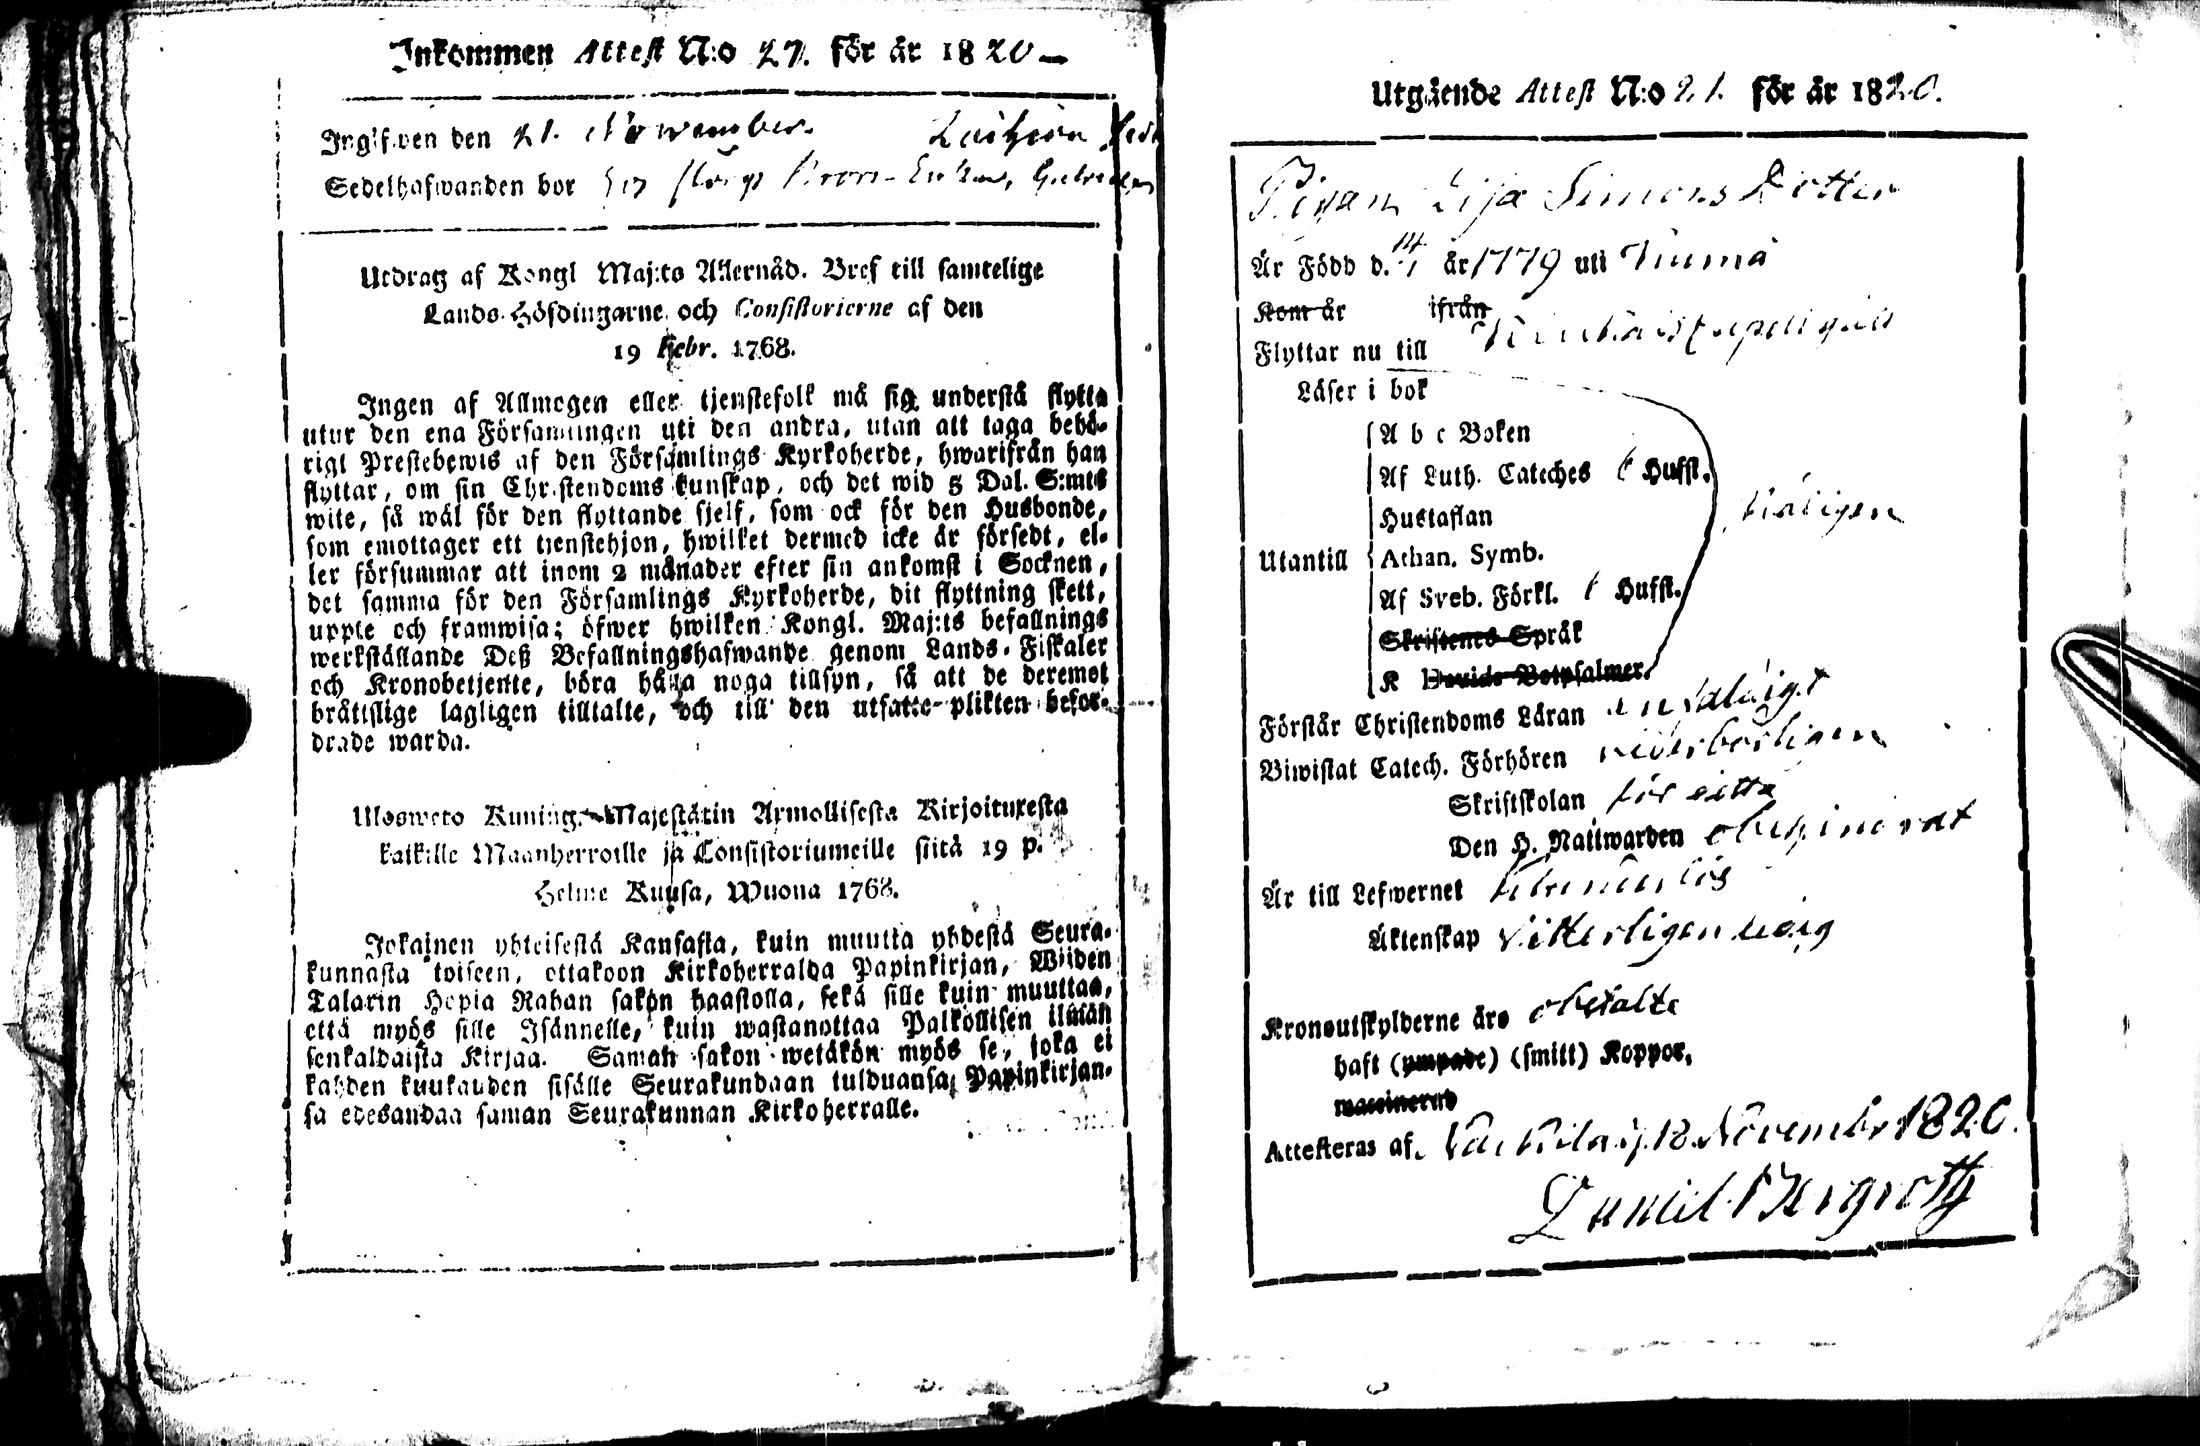 Inkommen Attest N:o 27. för år 1820
Ingifwen den 21. November.
Sedelhafwanden bor
Utdrag af Kongl Maj:ts Allernåd. Bref till samtelige
Lands-Höfdingarne och Consistorierne af den
19 Febr. 1768.
Ingen af Allmogen eller tjenstefolk må sig understå flytta
utur den ena Församlingen uti den andra, utan att taga behö-
rigt Prestebewis af den Församlings Kyrkoherde, hwarifrån han
flyttar, om sin Christendoms kunskap, och det wid 5 Dal. S:mts
wite, så wäl för den flyttande sjelf, som ock för den Husbonde,
som emottager ett tjenstehjon, hwilket dermed icke är försedt, el-
ler försummar att inom 2 månader efter sin ankomst i Socknen,
det samma för den Församlings Kyrkoherde, dit flyttning skett,
uppte och framwisa; öfwer hwilken Kongl. Maj:ts befallnings
werkställande Deß Befallningshafwande genom Lands-Fiskaler
och Kronobetjente, böra hålla noga tillsyn, så att de deremot
bråttslige lagligen tilltalte, och till den utsatte plikten befor-
drade warda.
Ulosweto Kuning. Majestätin Armollisesta Kirjoituxesta
kaikille Maanherroille ja Consistoriumeille siitä 19 p.
Helme Kuusa, Wuona 1768.
Jokainen yhteisestä Kansasta, kuin muutta yhdestä Seura-
kunnasta toiseen, ottakoon Kirkoherralda Papinkirjan, Wiiden
Talarin Hopia Rahan sakon haastolla, sekä sille kuin muuttaa,
että myös sille Isännelle, kuin wastanottaa Palkollisen ilman
senkaldaista Kirjaa. Saman sakon wetäkön myös se, joka ei
kahden kuukauden sisälle Seurakundaan tulduansa Papinkirjan-
sa edesandaa saman Seurakunnan Kirkoherralle.
Utgående Attest N:o 21. för år 1820.
Pigan Lisa Simons Dotter
Är Född d. 14 år 1779 uti
Kom år ifrån
Flyttar nu till
Läser i bok
A b c Boken
Af Luth. Cateches Hufst.
Hustaflan
Utantill Athan. Symb.
Af Sveb. Förkl. Hufst.
Skriftenes Språk
K Davids Botpsalmer
Förstår Christendoms Läran enfaldigt
Biwistat Catech. Förhören wederbörligen
Skriftskolan för detta
Den H. Nattwarden obehindrat
Är till Lefwernet
Äktenskap Witterligen ledig
Kronoutskylderne äro obetalte
haft (ympade) (smitt) Koppor,
vaccinerad
Attesteras af. 18 November 1820.
Daniel Bergroth